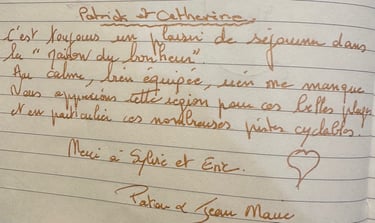 Patrick et Catherine
C'est toujours un plaisir de séjourner dans
la "maison du bonheur".
Au calme, bien équipée, rien ne manque
Nous apprécions cette région pour ces belles plages
et en particulier ces nombreuses pistes cyclables!
Merci à Sylvie et Eric.
& Jean Marc